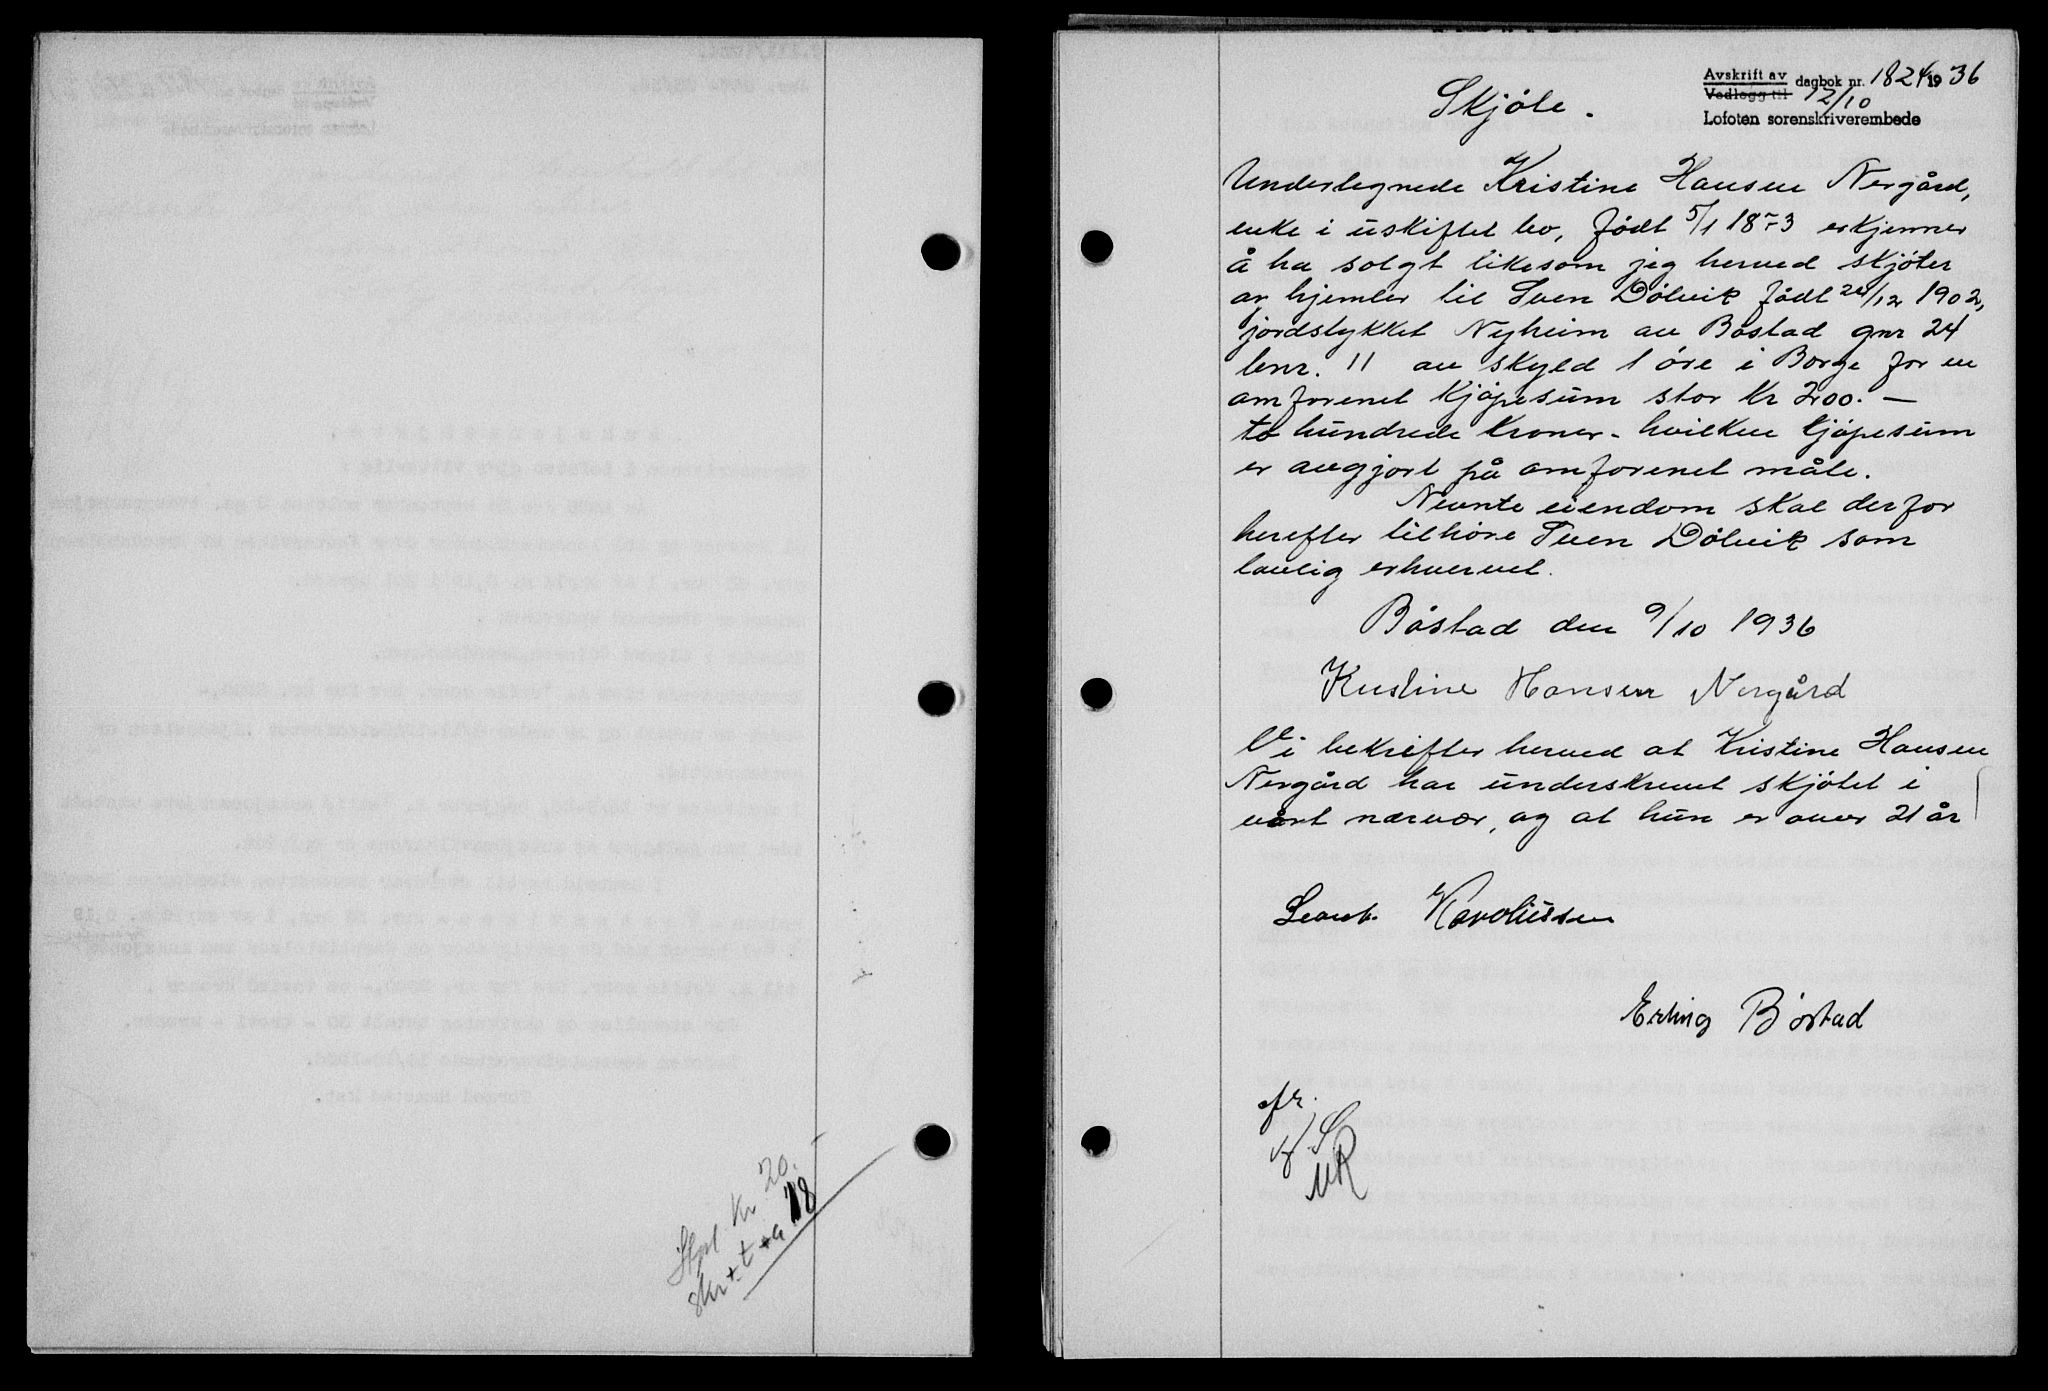 Stpl. Kr 20.-
skr + t + a 18
Avskrift av dagbok nr. 1824 1936
Vedlegg til 12/10
Lofoten sorenskriverembede
Skjöte.
Undertegnede Kristine Hansen Nergård,
enke i uskiftet bo, født 5/1 1873 erkjenner
å ha solgt likesom jeg herved skjöter
og hjemler til Sven Dölvik født 24/12 1902,
jordstykket Nyheim av Båstad gnr 24
bnr. 11 av skyld 1 öre i Borge for en
omforenet kjöpesum stor kr 200.—
to hundrede kroner - hvilken kjöpesum
er avgjort på omforenet måte.
Nevnte eiendom skal derfor
herefter tilhöre Sven Dölvik som
lovlig erhvervet.
Båstad den 9/10 1936
Kristine Hansen Nergård
Vi bekrefter herved at Kristine Hansen
Nergård har underskrevet skjötet i
vårt nærvær, og at hun er over 21 år
Karoliussen
Erling Böstad